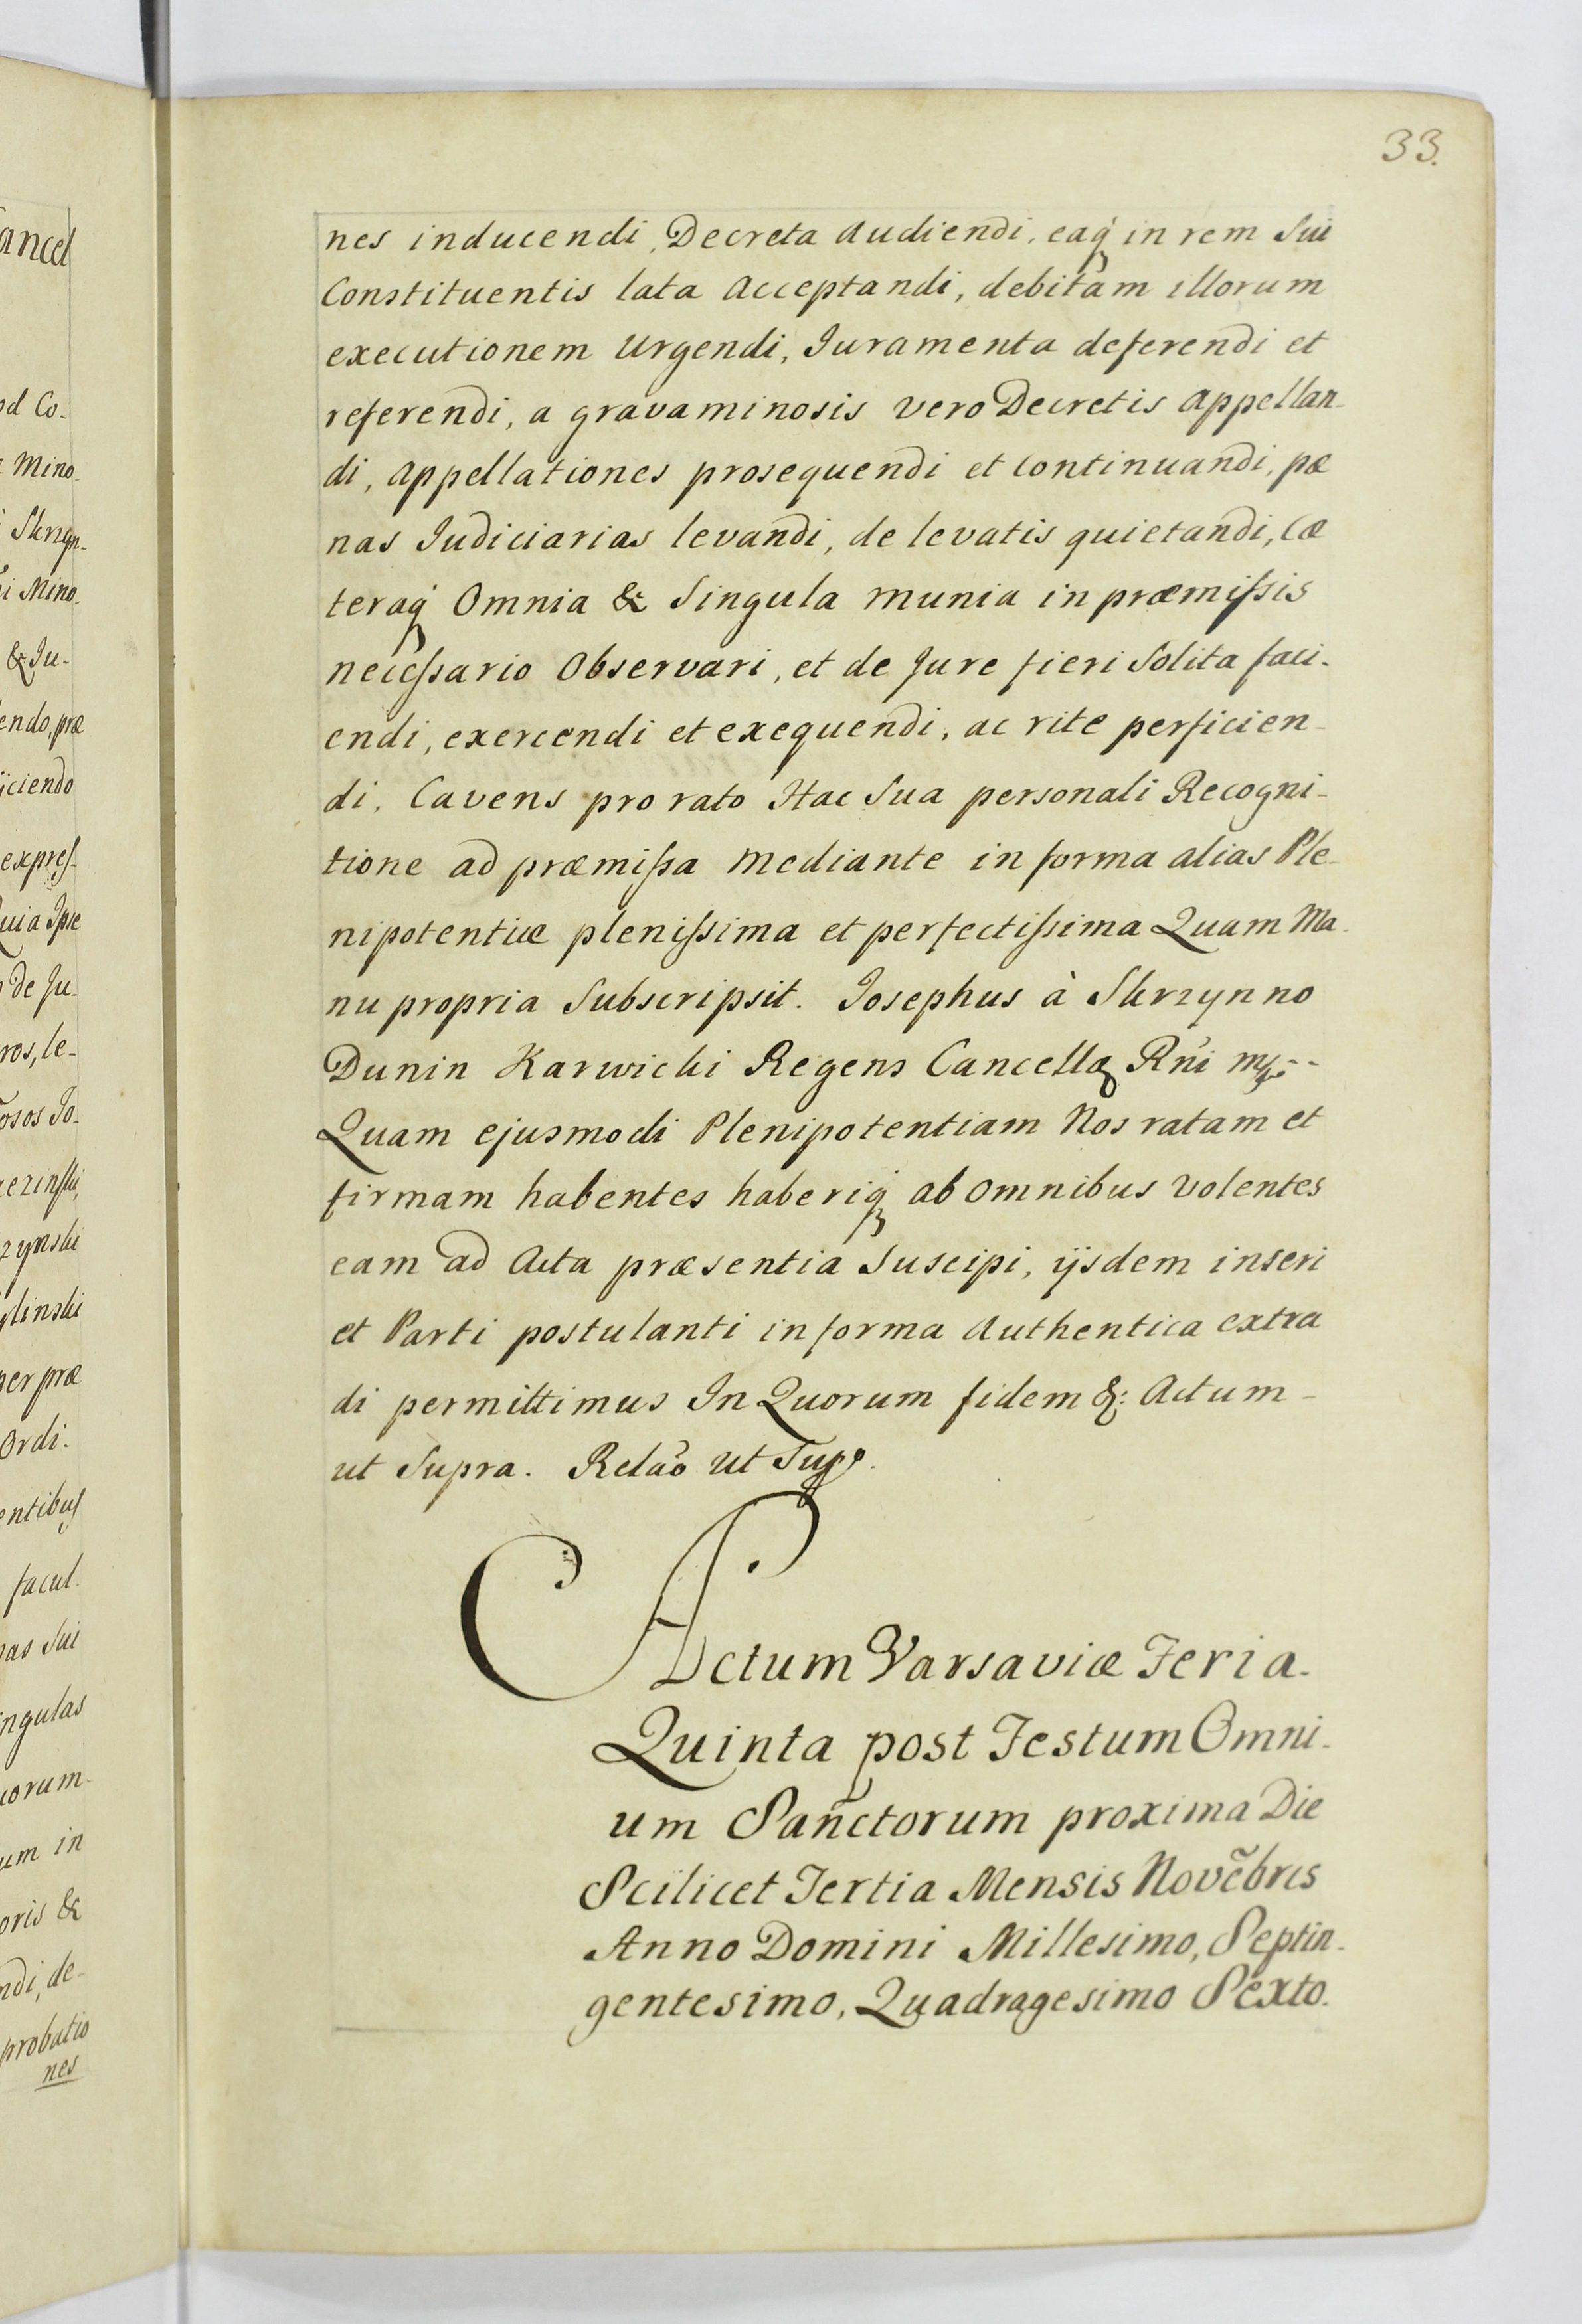 33.
nes inducendi, Decreta Audiendi, eaq́ in rem Sui
Constituentis lata Acceptandi, debitam illorum
executionem Urgendi, Juramenta deferendi et
referendi, a gravaminosis vero Decretis Appellan-
di, Appellationes prosequendi et Continuandi, pœ
nas Judiciarias levandi, de levatis quietandi, Cæ
teraq́ Omnia & Singula munia in præmiſsis
neceſsario Observari, et de Jure fieri Solita faci-
endi, exercendi et exequendi, ac rite perficien-
di. Cavens pro rato Hac Sua personali Recogni-
tione ad præmiſsa mediante in forma alias Ple-
nipotentiæ pleniſsima et perfectiſsima Quam Ma-
nu propria Subscripsit. Josephus à Skrzynno
Dunin Karwicki Regens Cancellæ Rñi mp --
Quam ejusmodi Plenipotentiam Nos ratam et
firmam habentes haberiq́ ab omnibus Volentes
eam ad Acta præsentia Suscipi, ijsdem inseri
et Parti postulanti in forma Authentica extra
di permittimus In Quorum fidem &: Actum -
ut Supra. Relao̅ ut Supr.
Actum Varsaviæ Feria-
Quinta post Festum Omni-
um Sanctorum proxima Die
Scilicet Tertia Mensis Nove̅bris
Anno Domini Millesimo, Septin-
gentesimo, Quadragesimo Sexto.
ancel
od Co-
Mino-
Skrzyn-
Mino-
& Ju-
endo, præ
ijciendo
expreſ-
Quia Ipse
de Ju-
ros, le-
osos Jo-
zynski
linski
per præ
Ordi-
entibus
facul-
nas Sui
ingulas
uorum-
um in
oris &
ndi, de-
probatio
nes